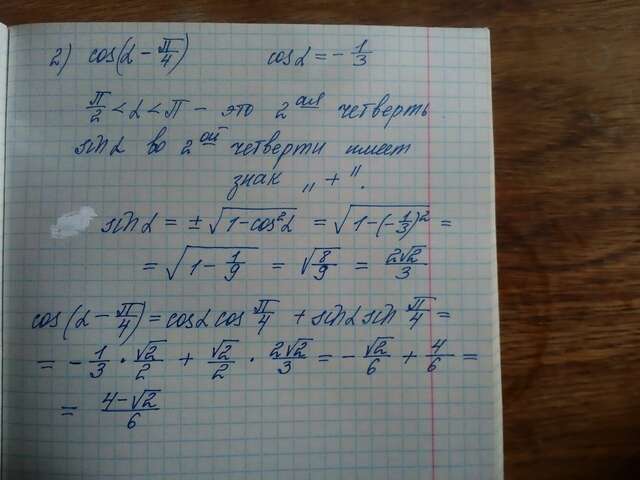 2) cos(α − π/4) cosα = −1/3
π/2 < α < π − это 2ая четверть
sinα во 2ой четверти имеет
знак „+".
sinα = ±√(1−cos²α) = √(1−(−1/3)²) =
= √(1−1/9) = √(8/9) = 2√2/3
cos(α − π/4) = cosα cos π/4 + sinα sin π/4 =
= −1/3 · √2/2 + √2/2 · 2√2/3 = −√2/6 + 4/6 =
= (4−√2)/6